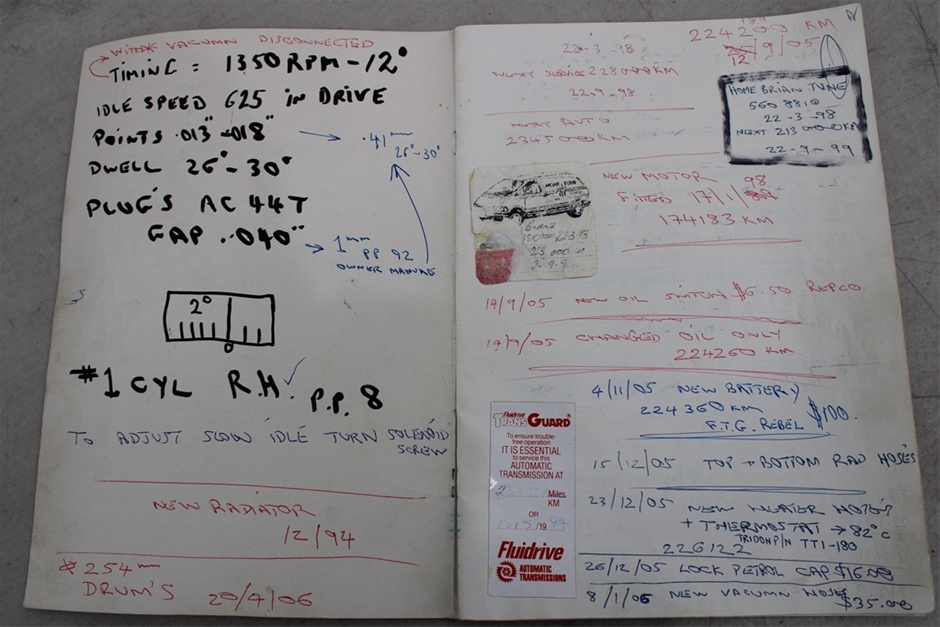 WITH VACUMN DISCONNECTED
TIMING = 1350 RPM - 12°
IDLE SPEED 625 IN DRIVE
POINTS .013" - .018" → .41mm
26° - 30°
DWELL 26° - 30°
PLUG'S AC 44T
GAP .040" → 1mm PP 92
OWNER MANUAL
2°
0
#1 CYL R.H. ✓ P.P. 8
TO ADJUST SLOW IDLE TURN SOLENOID
SCREW
NEW RADIATOR
12/94
* 254mm
DRUM'S 20/4/06
22-3-98
NEXT SERVICE 228000KM
22-9-98
NEXT AUTO
234500KM
KM
/9/05
12
HOME BRIAN TUNE
560 8310
22-3-98
NEXT 213000KM
22-9-99
NEW MOTOR 98
FITTED 17/1/
174183 KM
14/9/05 NEW OIL SWITCH $6.50 REPCO
14/9/05 CHANGED OIL ONLY
224260 KM
4/11/05 NEW BATTERY
224360 KM $100.
F.T.G. REBEL
15/12/05 TOP + BOTTOM RAD HOSE'S
23/12/05 NEW HEATER HOSE'S
+ THERMOSTAT → 82°C
TRIDON P/N TT1-180
226122
26/12/05 LOCK PETROL CAP $16.00
8/1/06 NEW VACUMN HOSE $35.00
Fluidrive
TRANSGUARD
To ensure trouble-
free operation
IT IS ESSENTIAL
to service this
AUTOMATIC
TRANSMISSION AT
Miles
KM
OR
/19
Fluidrive
AUTOMATIC
TRANSMISSIONS